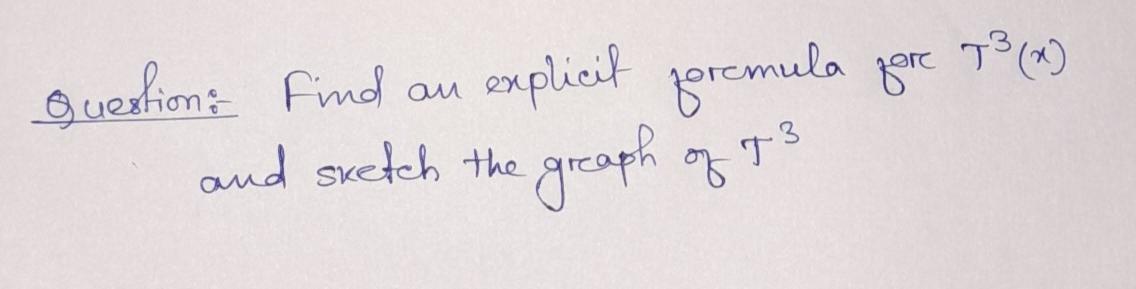 Question: Find an explicit formula for T³(x)
and sketch the graph of T³